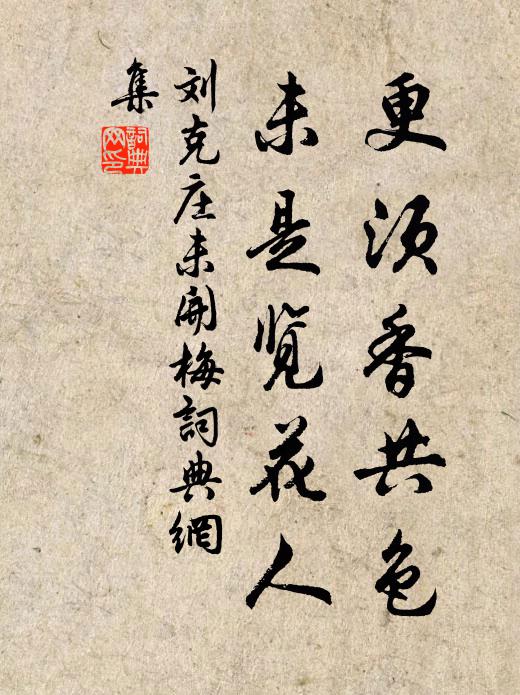 更须香共色
未是览花人
刘克庄未开梅詞典網
集
詞典网印